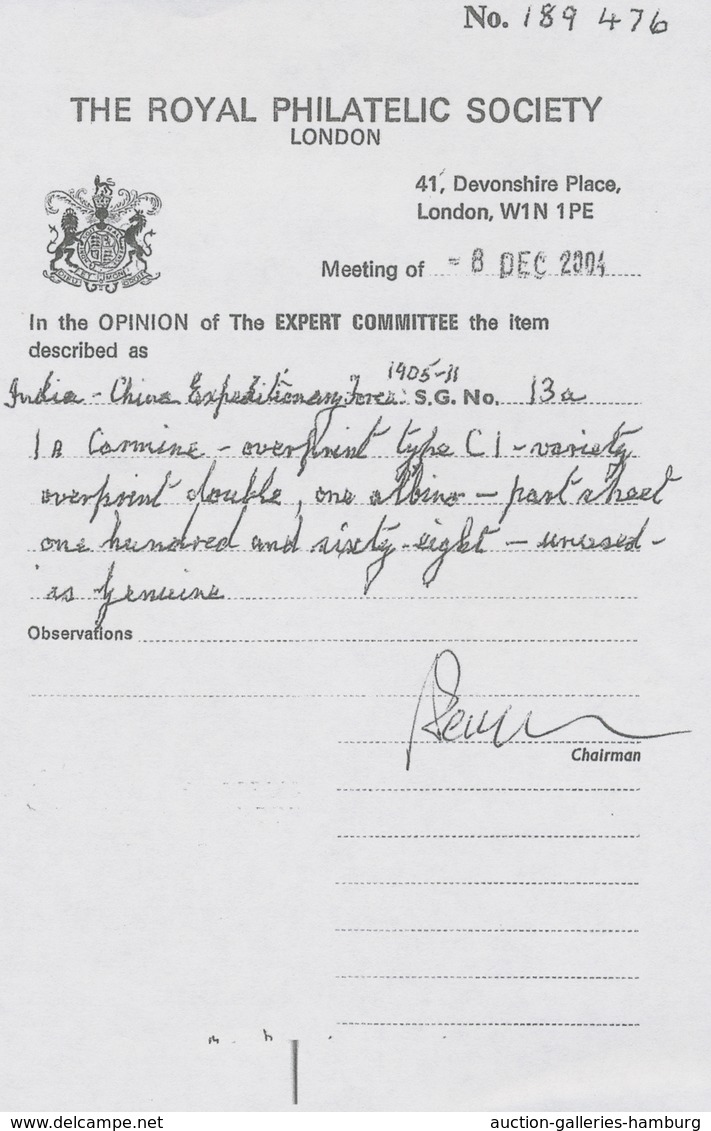 No. 189 476
THE ROYAL PHILATELIC SOCIETY
LONDON
41, Devonshire Place,
London, W1N 1PE
Meeting of - 8 DEC 2004
In the OPINION of The EXPERT COMMITTEE the item
described as
1905-11
India - China Expeditionary Force S.G. No. 13a
1a Carmine - overprint type C1 - variety
overprint double, one albino - part sheet
one hundred and sixty-eight - unused -
is genuine
Observations
Chairman
www.delcampe.net auction-galleries-hamburg